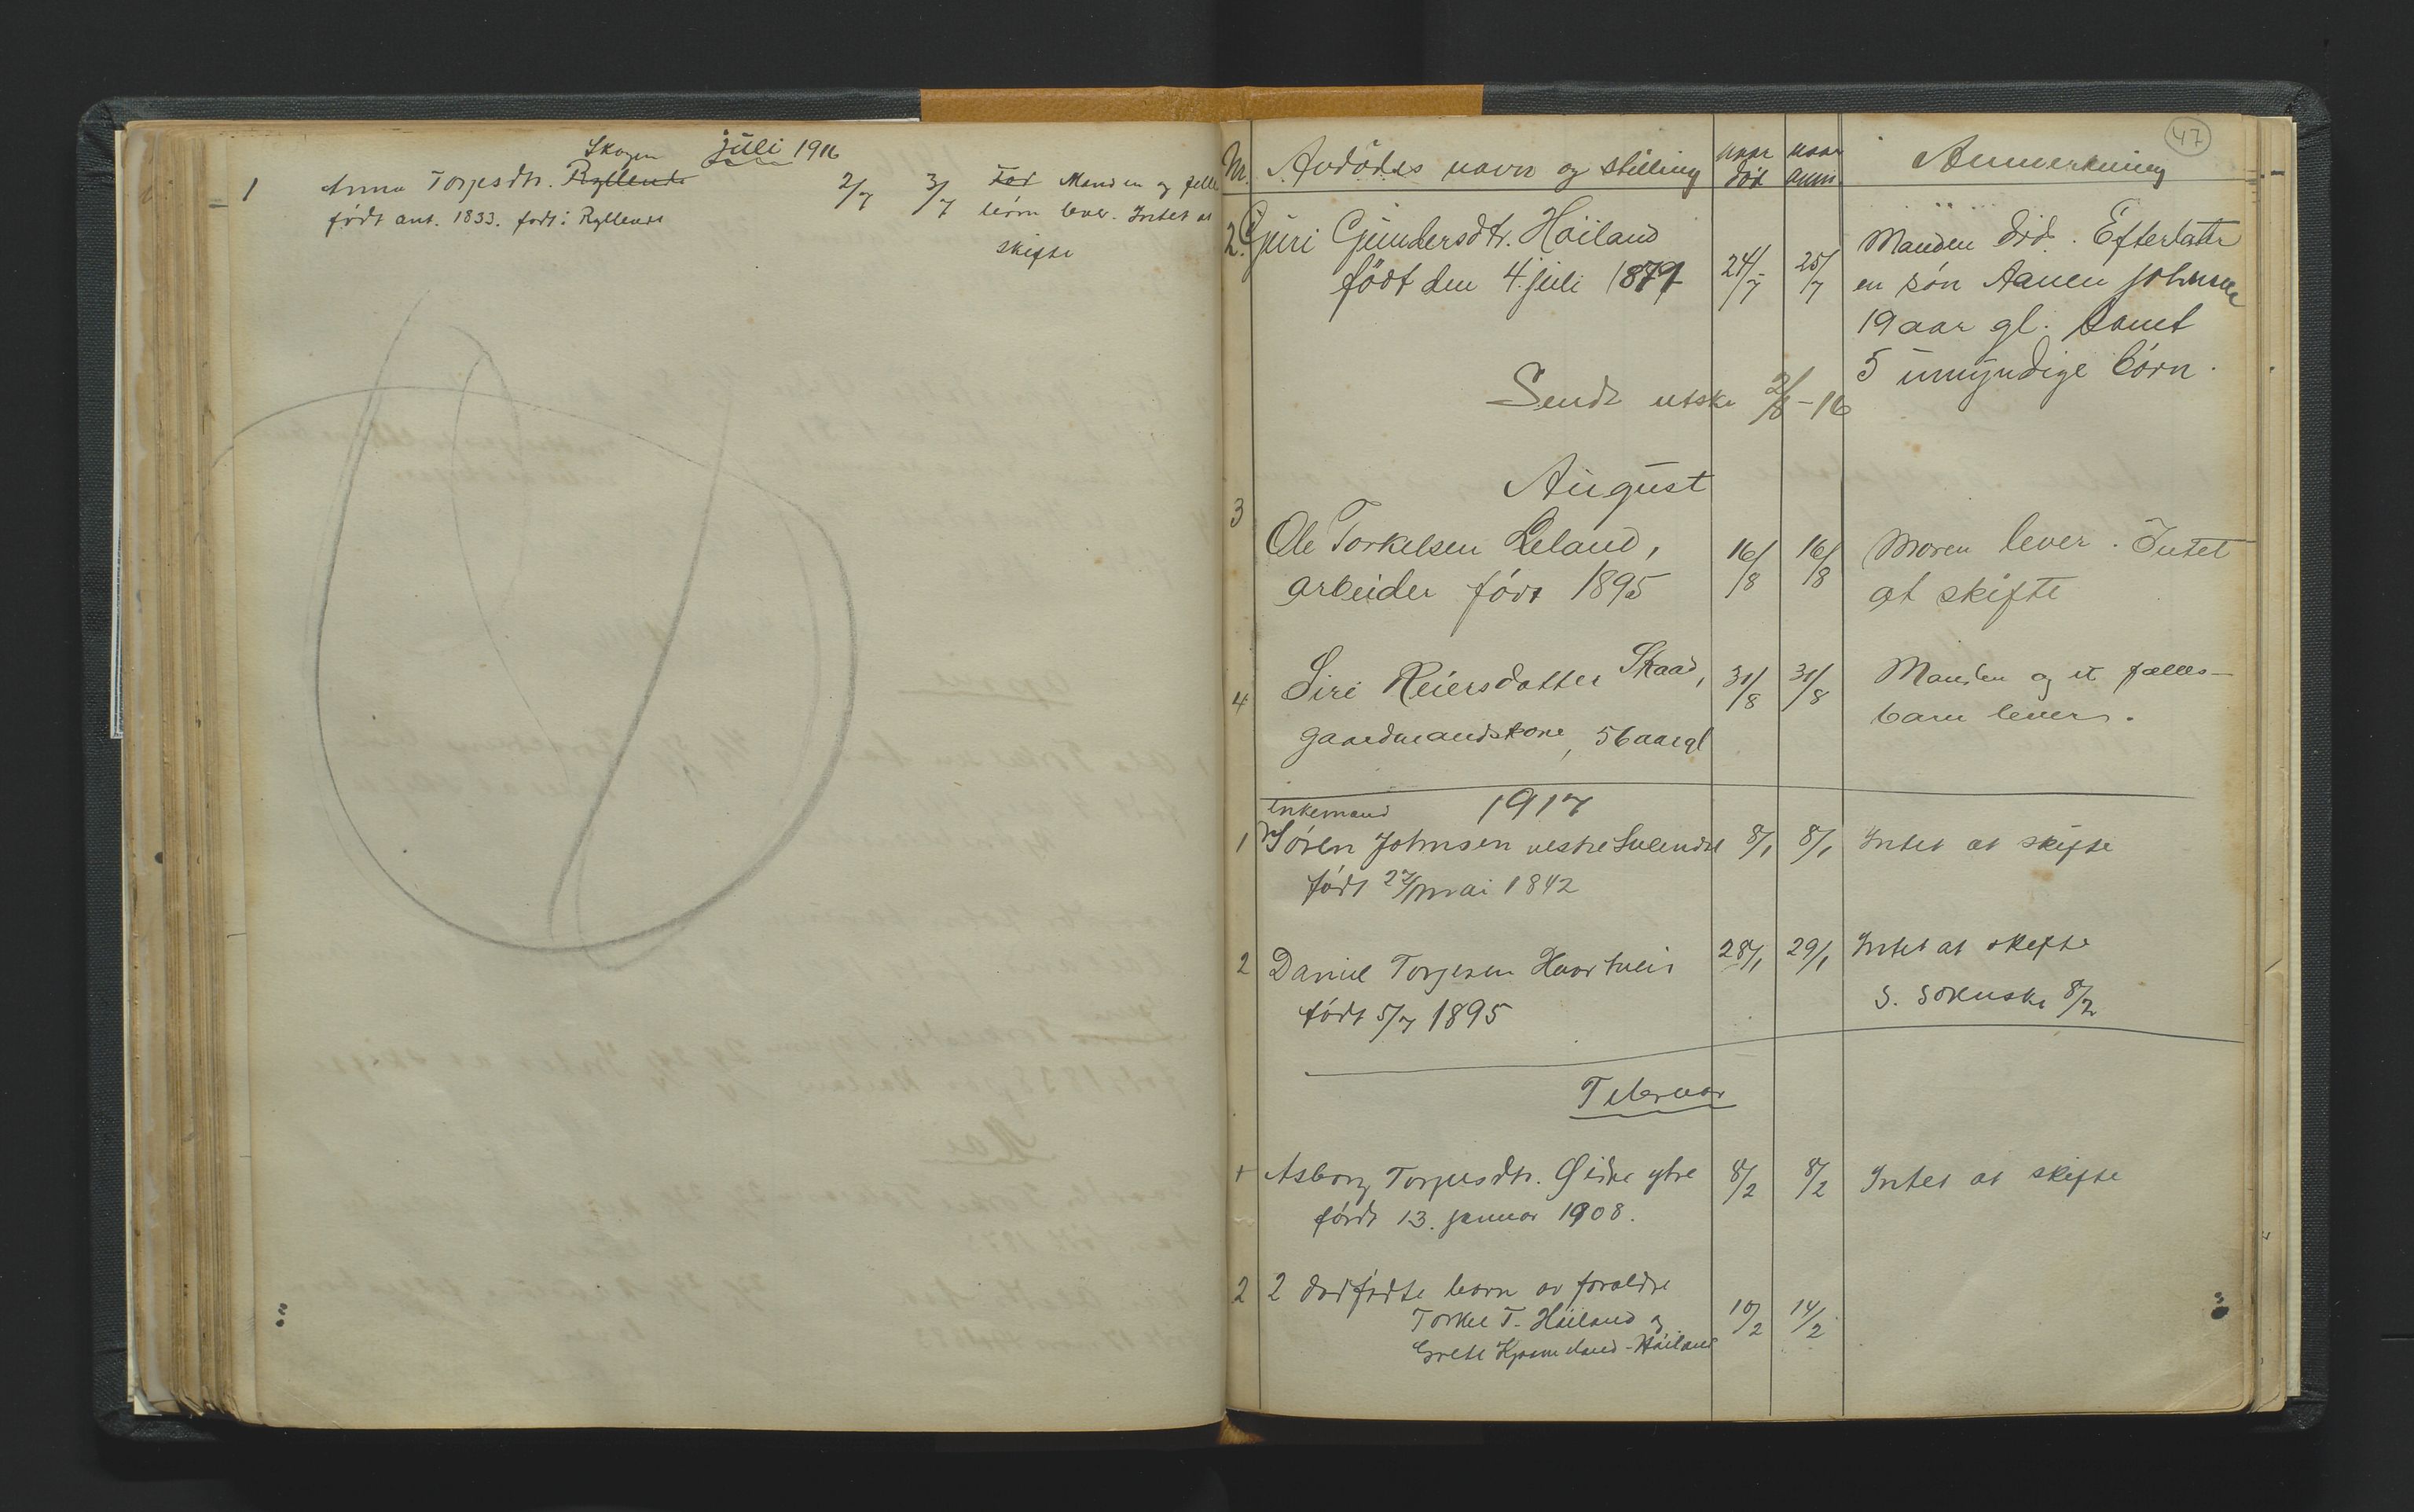 juli 1916
Skogen
1 Anna Torjesdtr. Ryllende 2/7 3/7 Fød Manden og felles
født ant. 1833. født i Ryllende børn lever. Intet at
skifte
47
Nr. Avdødes navn og stilling naar død naar anm. Anmerkning
2. Guri Gundersdtr. Höiland 24/7 25/7 Manden död. Efterlater
født den 4. juli 1871 en sön Aanen Johnsen
19 aar gl. samt
5 umyndige børn.
Sendt utskr 2/8-16
August
3 Ole Torkelsen Leland, 16/8 16/8 Moren lever. Intet
arbeider født 1895 at skifte
4 Siri Reiersdatter Skaad, 31/8 31/8 Manden og et fælles-
gaardmandskone, 56 aar gl barn lever.
1917
enkemand
1 Søren Johnsen vestre Svendse 8/1 8/1 Intet at skifte
født 22/mai 1842
2 Daniel Torjesen Haartveit 28/1 29/1 Intet at skifte
født 5/7 1895 S. sorenskr 8/2
Februar
1 Asborg Torjusdtr. Eidse ytre 8/2 8/2 Intet at skifte
født 13. januar 1908.
2 2 dødfødte barn av foreldre
Torkel T. Höiland og 10/2 14/2
Grete -Höiland